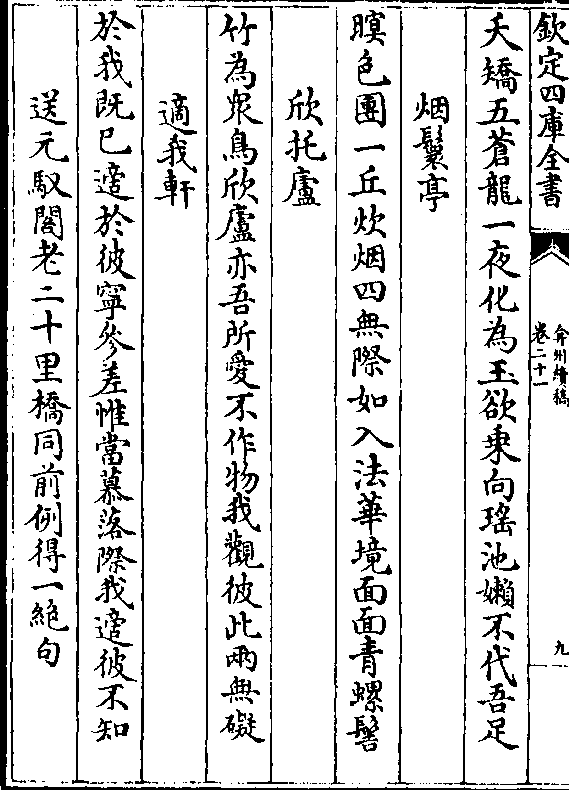 欽定四庫全書
弇州續稿
卷二十一
九
夭矯五蒼龍一夜化為玉欲乗向瑶池嬾不代吾足
烟鬟亭
暝色團一丘炊烟四無際如入法華境面面青螺髻
欣托廬
竹為衆鳥欣廬亦吾所愛不作物我觀彼此兩無礙
適我軒
於我既已適於彼寧參差惟當慕落際我適彼不知
送元馭閣老二十里橋同前例得一絶句